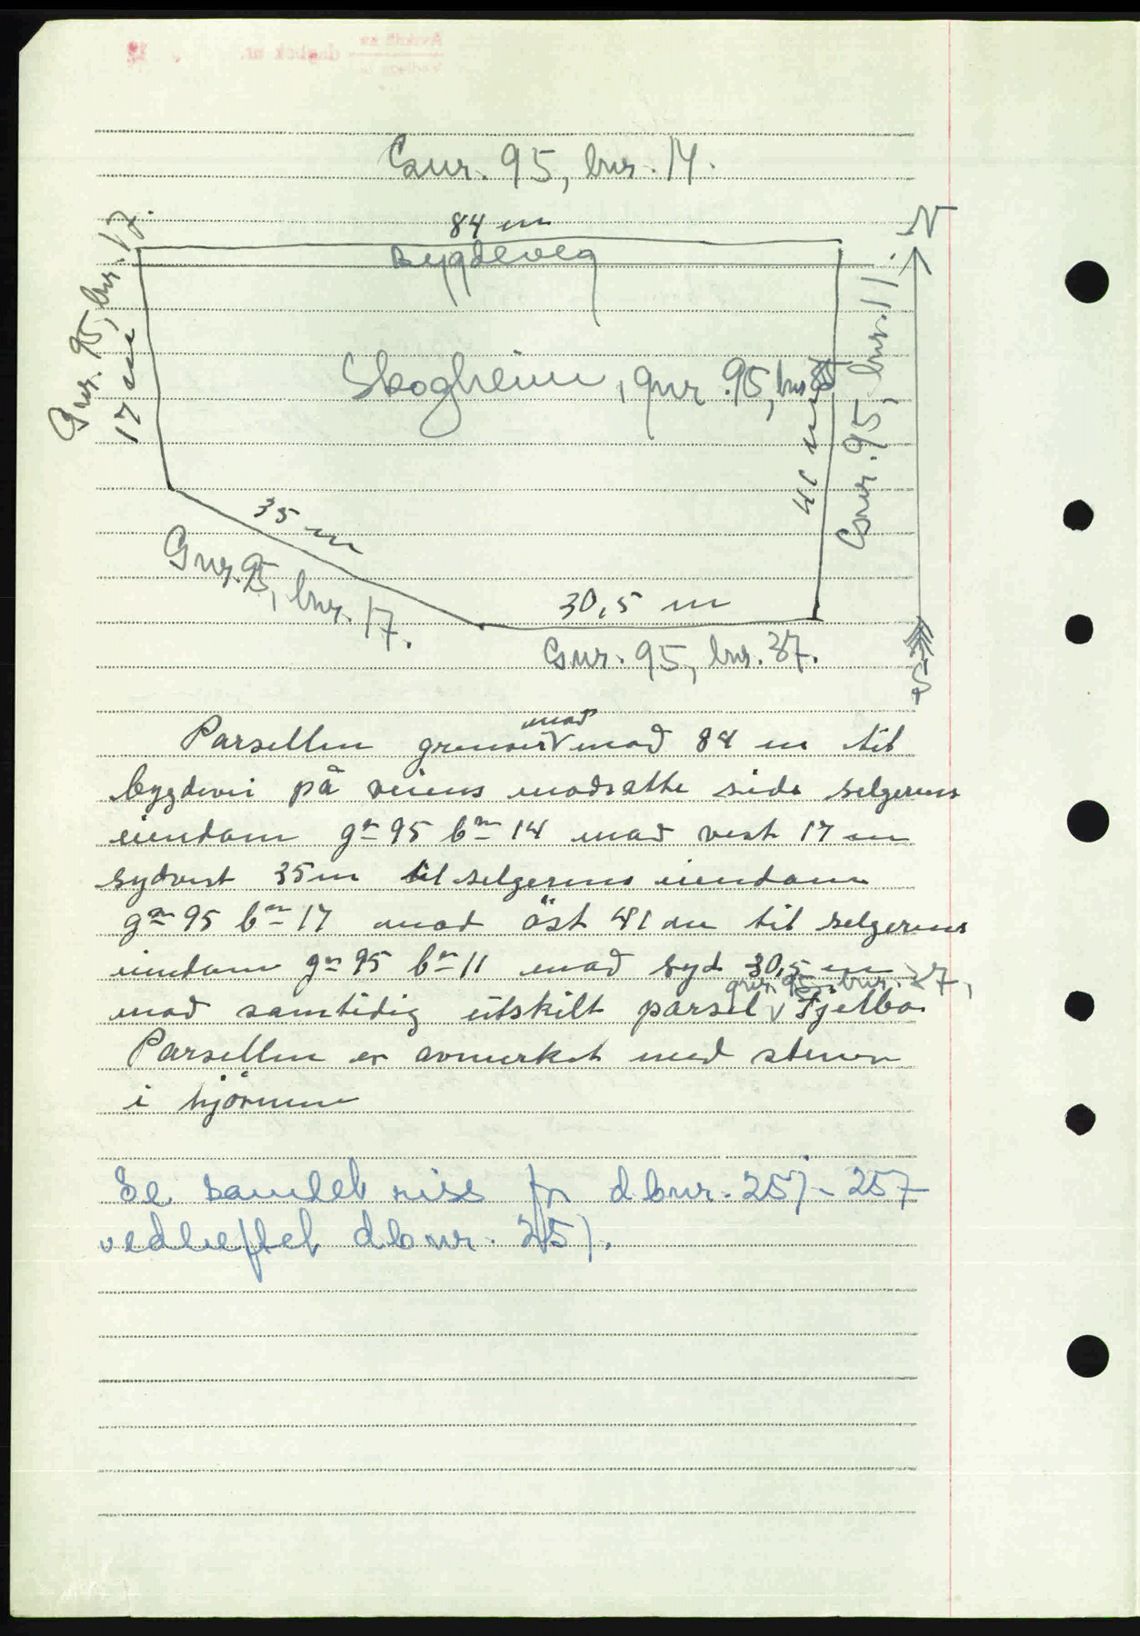 Gnr. 95, bnr. 14.
84 m
Bygdeveg
N
Gnr. 95, bnr. 17.
17 m
Skogheim, gnr. 95, bnr.
41 m
Gnr. 95, bnr. 11.
35 m
Gnr. 95, bnr. 17.
30,5 m
Gnr. 95, bnr. 37.
S
mod
Parsellen grenser mod 84 m til
bygdevei på veiens modsatte side selgerens
eiendom gn 95 bn 14 mod vest 17 m
sydvest 35 m til selgerens eiendom
gn 95 bn 17 mod öst 41 m til selgerens
eiendom gn 95 bn 11 mod syd 30,5 m
gnr. 95, bnr. 37,
mod samtidig utskilt parsel Fjelbo
Parsellen er avmerket med stener
i hjörnene
Se samlet riss for dbnr. 251-257
vedheftet dbnr. 251.